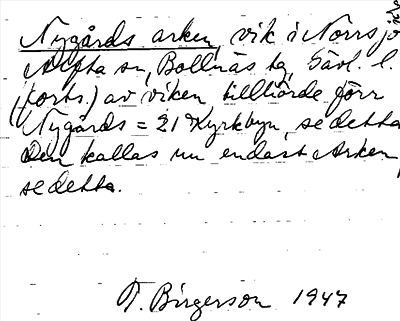 Nygårds arken, vik i Norrsjö
Alfta sn, Bollnäs tg, Gävl. l.
(forts.) av viken tillhörde förr
Nygårds = 21 Kyrkbyn, se detta
Den kallas nu endast Arken,
se detta.
T. Birgerson 1947